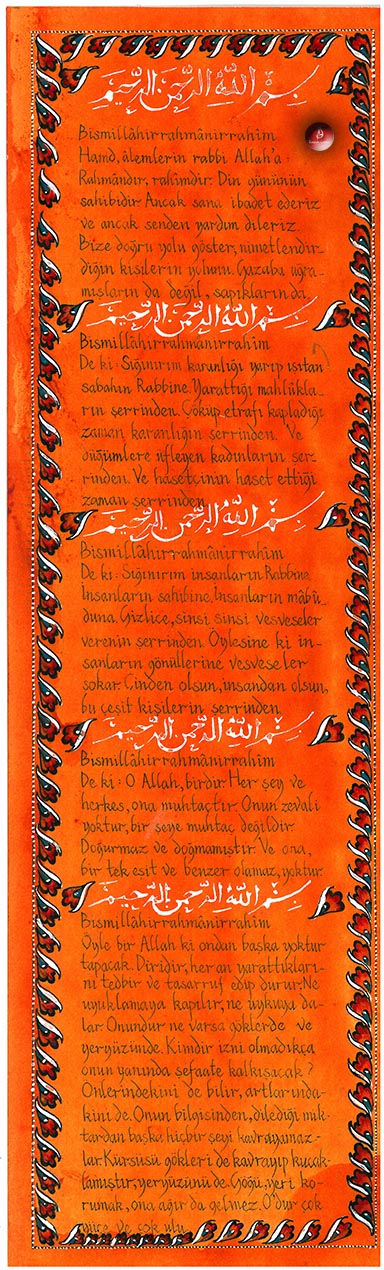 بِسْمِ اللّٰهِ الرَّحْمٰنِ الرَّحِيمِ
Bismillâhirrahmânirrahim
Hamd, âlemlerin rabbi Allah'a
Rahmândır, rahîmdir. Din gününün
sahibidir. Ancak sana ibadet ederiz
ve ancak senden yardım dileriz.
Bize doğru yolu göster, nimetlendir-
diğin kişilerin yolunu. Gazaba uğra-
mışların da değil, sapıkların da
بِسْمِ اللّٰهِ الرَّحْمٰنِ الرَّحِيمِ
Bismillâhirrahmânirrahim
De ki: Sığınırım karanlığı yarıp ısıtan
sabahın Rabbine. Yarattığı mahlûkla-
rın şerrinden. Çöküp etrafı kapladığı
zaman karanlığın şerrinden. Ve
düğümlere üfleyen kadınların şer-
rinden. Ve hasetçinin haset ettiği
zaman şerrinden
بِسْمِ اللّٰهِ الرَّحْمٰنِ الرَّحِيمِ
Bismillâhirrahmânirrahim
De ki: Sığınırım insanların Rabbine.
İnsanların sahibine. İnsanların mâbû-
duna. Gizlice, sinsi sinsi vesveseler
verenin şerrinden. Öylesine ki in-
sanların gönüllerine vesveseler
sokar. Cinden olsun, insandan olsun,
bu çeşit kişilerin şerrinden
بِسْمِ اللّٰهِ الرَّحْمٰنِ الرَّحِيمِ
Bismillâhirrahmânirrahim
De ki: O Allah, birdir. Her şey ve
herkes, ona muhtaçtır. Onun zevali
yoktur, bir şeye muhtaç değildir.
Doğurmaz ve doğmamıştır. Ve ona,
bir tek eşit ve benzer olamaz, yoktur.
بِسْمِ اللّٰهِ الرَّحْمٰنِ الرَّحِيمِ
Bismillâhirrahmânirrahim
Öyle bir Allah ki ondan başka yoktur
tapacak. Diridir, her an yarattıkları-
nı tedbir ve tasarruf edip durur. Ne
uyuklamaya kapılır, ne uykuya da-
lar. Onundur ne varsa göklerde ve
yeryüzünde. Kimdir izni olmadıkça
onun yanında şefaate kalkışacak?
Önlerindekini de bilir, artlarında-
kini de. Onun bilgisinden, dilediği mik-
tardan başka hiçbir şeyi kavrayamaz-
lar. Kürsüsü gökleri de kavrayıp kucak-
lamıştır, yeryüzünü de. Göğü, yeri ko-
rumak, ona ağır da gelmez. O'dur çok
yüce ve çok ulu